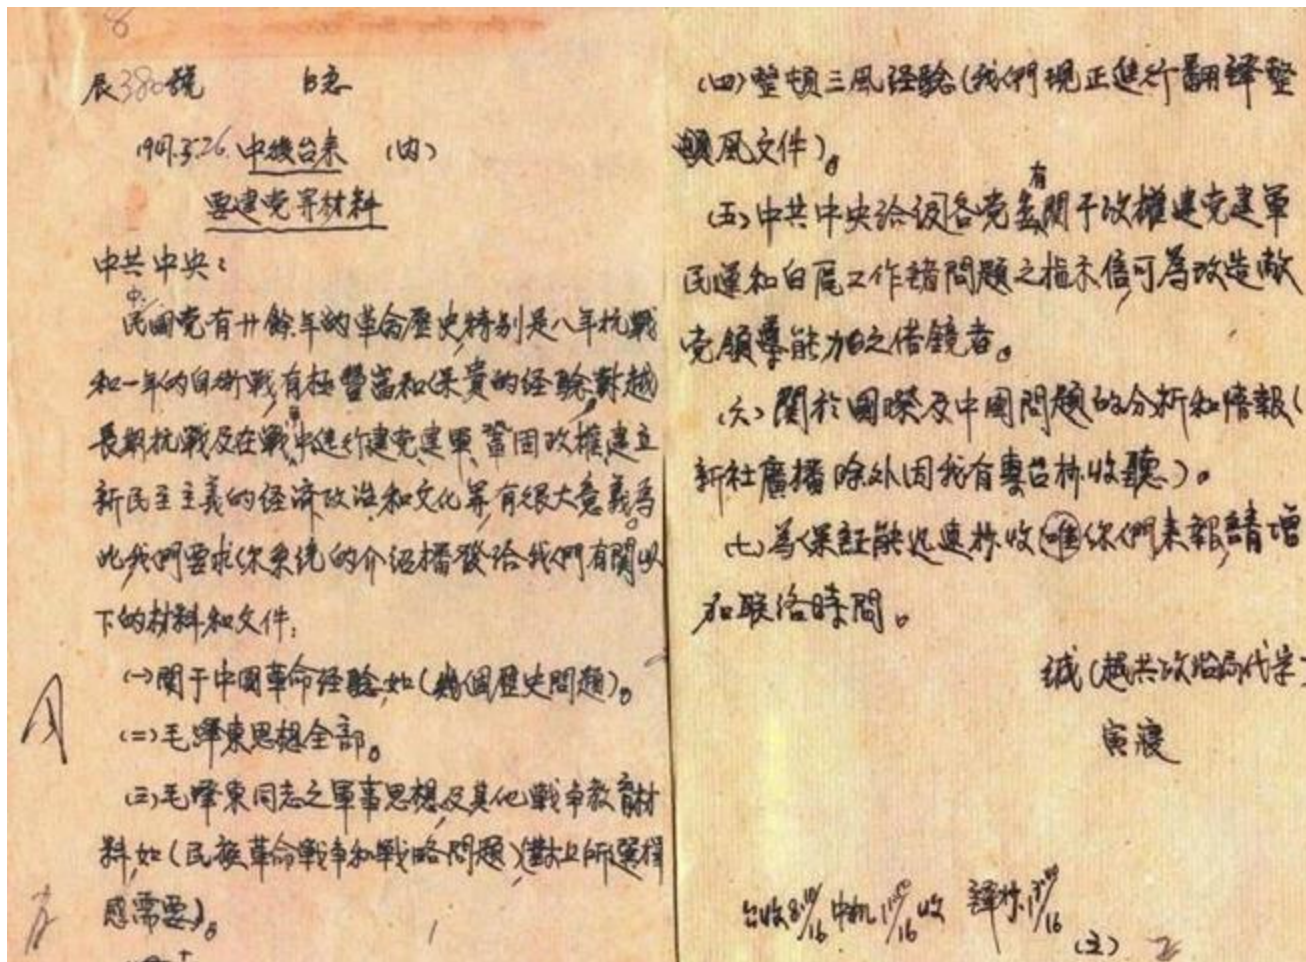 8
辰380號 B急
1947.3.26.中後台來 (內)
要建党等材料
中共中央:
中
民國党有廿餘年的革命歷史,特别是八年抗戰
和一年的自衛戰,有極豐富和保貴的经驗,對越
長期抗戰及在戰爭中進行建党、建軍、鞏固政權、建立
新民主主義的经濟政治和文化等,有很大意義。為
此,我們要求你系統的介紹播發给我們有關以
下的材料和文件:
(一)関于中國革命经驗,如(幾個歷史問題)。
(二)毛澤東思想全部。
(三)毛澤東同志之軍事思想,及其他戰争教育材
料,如(民族革命戰争和戰略問題)(對上師選擇
感需要)。
1
(四)整頓三風经驗(我們現正進行翻譯整
頓風文件)。
有
(五)中共中央给各党關于政權建党建軍
民運和白區工作諸問題之指示信,可為改造敝
党領導能力之借鏡者。
(六)關於國際及中國問題的分析和情報(
新社廣播除外因我有專台抄收聽)。
(七)為保証能迅速抄收你們來報,請增
加联络時間。
诚(越共政治局代字)
寅寢
台收8 10/16 中机1 50/16收 譯抄1 3/16
(主) 2